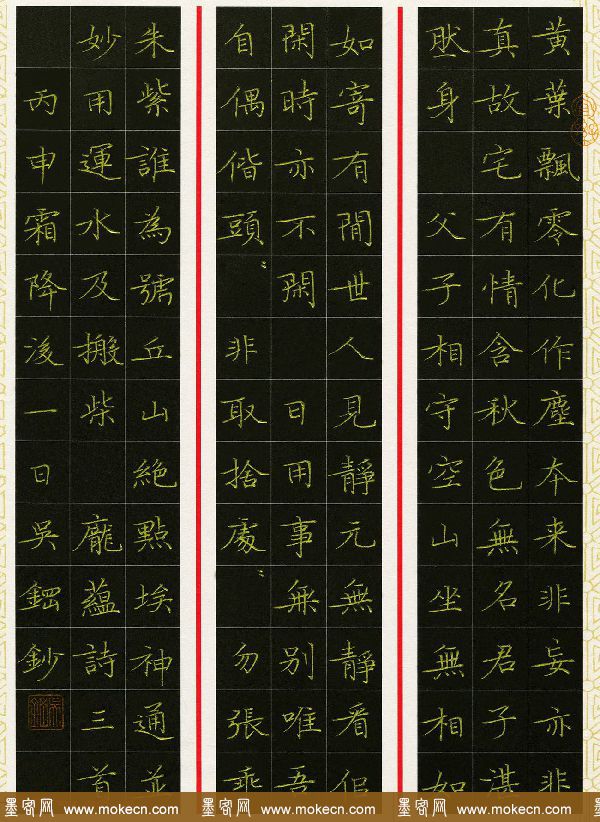 黄葉飄零化作塵本来非妄亦非
真故宅有情含秋色無名君子湛
然身 父子相守空山坐無相如
如寄有閒世人見靜元無靜看侣
閑時亦不閑 日用事無別唯吾
自偶偕頭々 非取捨處々 勿張乖
朱紫誰為號丘山絕點埃神通並
妙用運水及搬柴 龐蘊詩三首
丙申霜降後一日吳鋼鈔
墨客网 www.mokecn.com 墨客网 www.mokecn.com 墨客网 www.mokecn.com